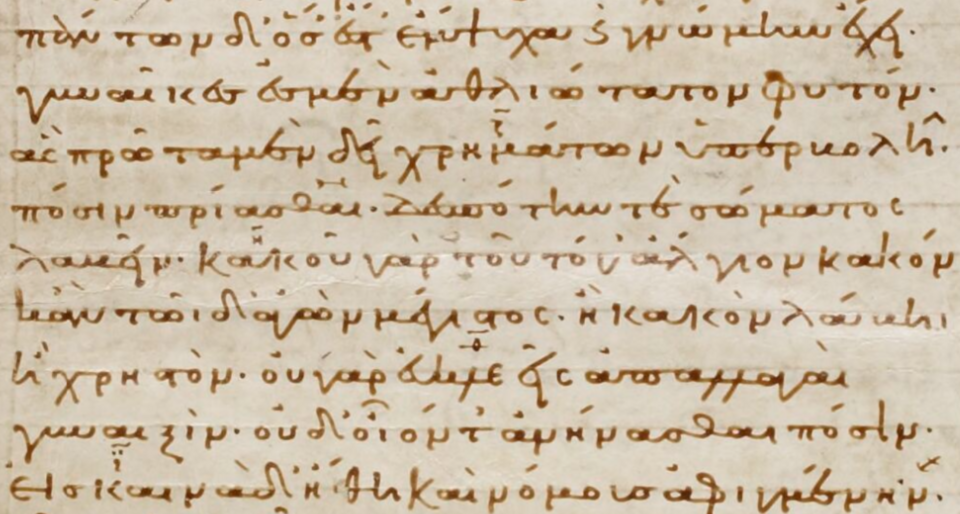 πάντων δ' ὅσ' ἐστ' ἔμψυχα κ γνώμην ἔχει·
γυναῖκες ἐσμὲν ἀθλιώτατον φυτόν·
ἃς πρῶτα μὲν δεῖ χρημάτων ὑπερβολῆ·
πόσιν πρίασθαι· δεσπότην τὲ σώματος
λαβεῖν· κακοῦ γὰρ τοῦτό γ' ἄλγιον κακόν
κἂν τῶιδ' ἀγὼν μέγιστος· ἢ κακὸν λαβεῖν
ἢ χρηστόν· οὐ γὰρ εὐκλεεῖς ἀπαλλαγαὶ
γυναιξίν· οὐδ' οἷόν τ' ἀνήνασθαι πόσιν·
Εἰς καινὰ δ' ἤθη καὶ νόμους ἀφιγμένην·